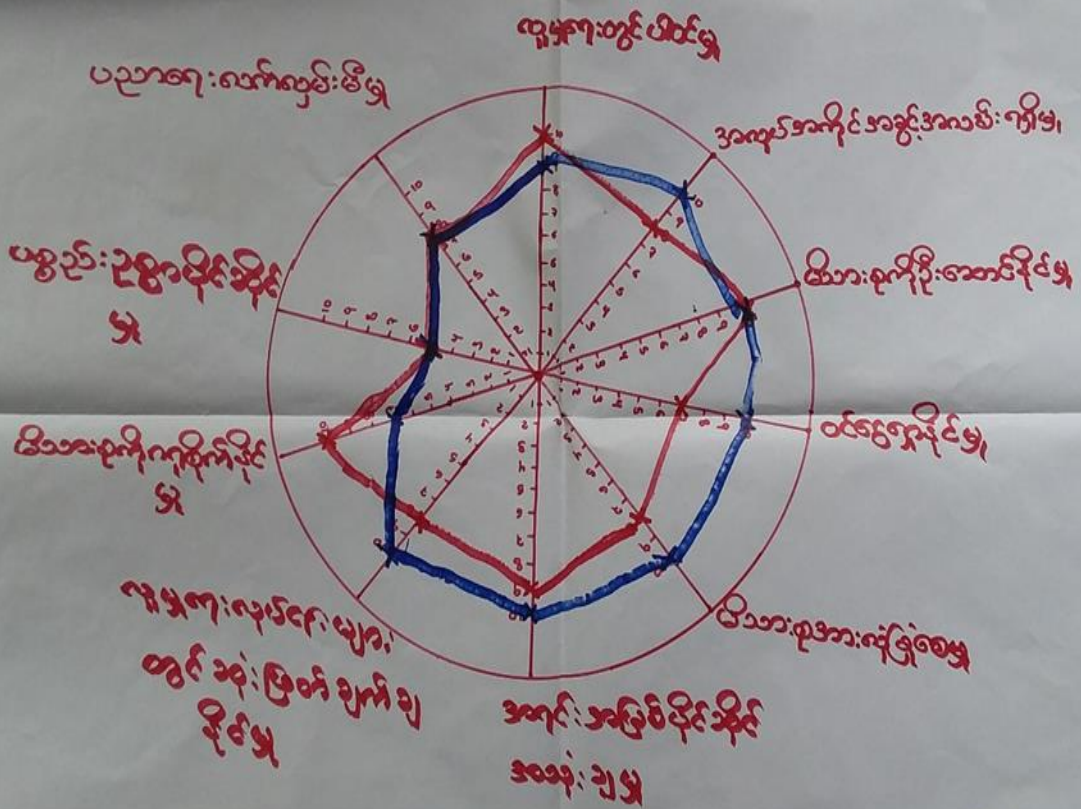 လူမှုရေးတွင်ပါဝင်မှု
အလုပ်အကိုင်အခွင့်အလမ်းရရှိမှု
မိသားစုကိုဦးဆောင်နိုင်မှု
ဝင်ငွေရှာနိုင်မှု
မိသားစုအားလုံခြုံစေမှု
အရင်းအမြစ်ပိုင်ဆိုင်
အသုံးချမှု
လူမှုရေးလုပ်ငန်းများ
တွင်ဆုံးဖြတ်ချက်ချ
နိုင်မှု
မိသားစုကိုဂရုစိုက်နိုင်
မှု
ပစ္စည်းဥစ္စာပိုင်ဆိုင်
မှု
ပညာရေးလက်လှမ်းမီမှု